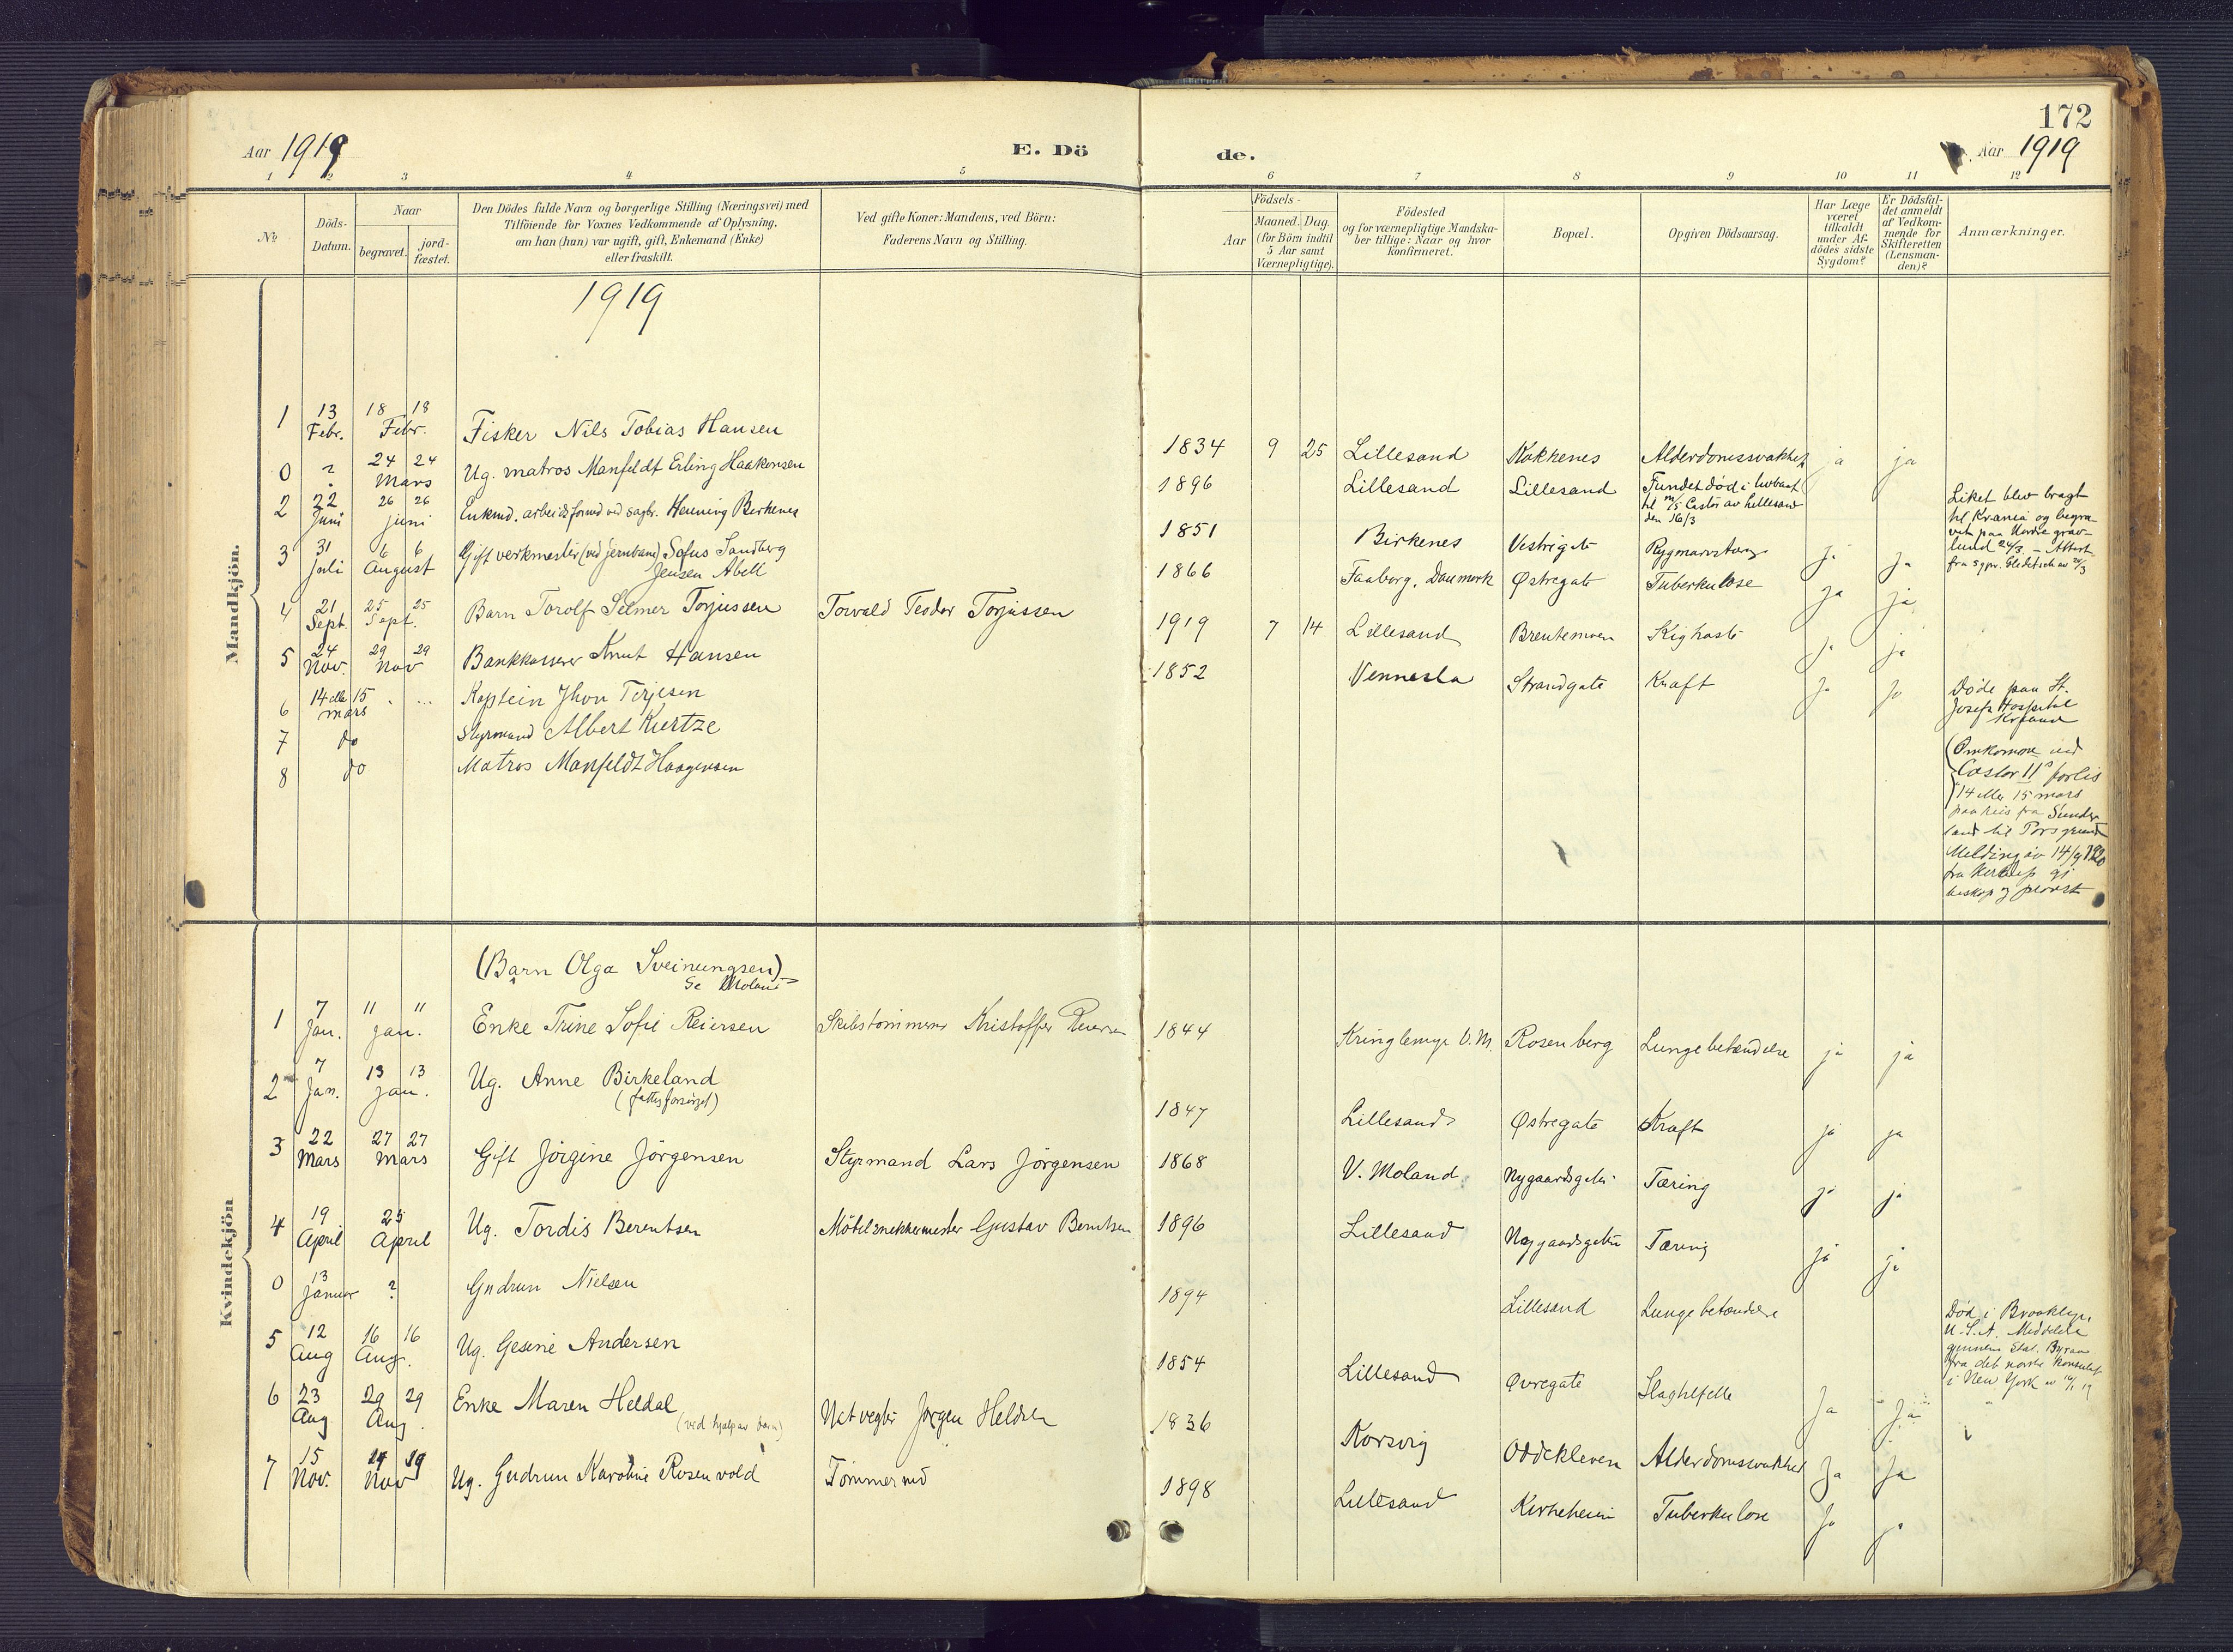 172
Aar 1919
E. Dö
de.
Aar 1919
1 2 3 4 5
6 7 8 9 10 11 12
No
Döds-
Datum.
Naar
begravet.
jord-
fæstet.
Den Dödes fulde Navn og borgerlige Stilling (Næringsvei) med
Tilföiende for Voxnes Vedkommende af Oplysning,
om han (han) var ugift, gift, Enkemand (Enke)
eller fraskilt.
Ved gifte Koner: Mandens, ved Börn:
Faderens Navn og Stilling.
Födsels-
Aar
Maaned. Dag.
(for Börn indtil
5 Aar samt
Værnepligtige).
Födested
og for værnepligtige Mandska-
ber tillige: Naar og hvor
konfirmeret.
Bopæl.
Opgiven Dödsaarsag.
Har Læge
været
tilkaldt
under Af-
dödes sidste
Sygdom?
Er Dödsfal-
det anmeldt
af Vedkom-
mende for
Skifteretten
(Lensman-
den)?
Anmærkninger.
1919
Mandkjön.
1 13 Febr. 18 18 Febr. Fisker Nils Tobias Hansen
1834 9 25 Lillesand Kokkenes Alderdomssvakhet ja ja
0 ? 24 24 Mars Ug. matros Manfeldt Erling Haakonsen
1896 Lillesand Lillesand Fundet død i
til m/s Castor av Lillesand
den 16/3
Liket blev bragt
til Krania og begra-
vet paa Nordre grav-
lund 24/3 - Attest
fra sgpr.
2 22 Juni 26 26 juni Enkmd. arbeidsformd ved sagbr. Henning Birkenes
1851 Birkenes Vestregate Rygmarvstæring ja ja
3 31 Juli 6 6 August Gift verkmester (ved jernbane) Sofus Sandberg
Jensen Abell
1866 Faaborg, Danmark Østregate Tuberkulose ja ja
4 21 Sept. 25 25 Sept. Barn Torolf Selmer Torjussen Torvald Teodor Torjussen
1919 7 14 Lillesand Brentemoen Kighoste ja ja
5 24 Nov. 29 29 Nov Bankkasserer Knut Hansen
1852 Vennesla Strandgate Kræft ja ja
Døde paa St.
Josefs Hospital
Krsand
6 14 eller 15 mars Kaptein Jhon Terjesen
7 do Styrmand Albert Kurtze
8 do Matros Manfeldt Haagensen
Omkomne ved
Castor II's forlis
14 eller 15 mars
paa reis fra Sunder
land til Porsgrund
Melding av 14/9 1920
fra
biskop og provst
Kvindekjön
(Barn Olga Sveinungsen)
Se Moland
1 7 Jan. 11 11 jan. Enke Trine Sofie Reiersen Skibstømmerm Kristoffer Reiersen
1844 Kringlemyr V.M. Rosenberg Lungebetændelse ja ja
2 7 Jan. 13 13 jan. Ug. Anne Birkeland
(fattigforsørget)
1847 Lillesand Østregate Kræft ja ja
3 22 Mars 27 27 Mars Gift Jörgine Jörgensen Styrmand Lars Jörgensen
1868 V. Moland Nygaardsgaten Tæring ja ja
4 19 April 25 April Ug. Tordis Berentsen Möbelsnekkermester Gustav Berntsen
1896 Lillesand Nygaardsgaten Tæring ja ja
0 13 Januar ? Gudrun Nielsen
1894 Lillesand Lungebetændelse
Død i Brooklyn,
U.S.A. Meddelt
gjennem Stat. Byraa
fra det norske Konsulat
i New York
5 12 Aug 16 16 Aug. Ug. Gesine Andersen
1854 Lillesand Øvregate Slagtilfelle Ja Ja
6 23 Aug 29 29 Aug. Enke Maren Heldal
(ved hjelp av barn)
Jørgen Heldal
1836 Korsvig Oddekleven Alderdomssvakhet Ja Ja
7 15 Nov. 19 19 Nov Ug. Gudrun Karoline Rosenvold Tømmermd
1898 Lillesand Kirkeheim Tuberkulose Ja ja